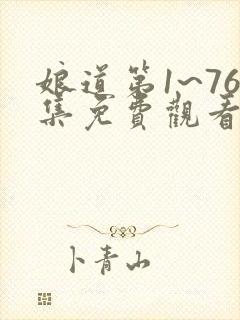 娘道第1~76
集免費觀看
卜青山